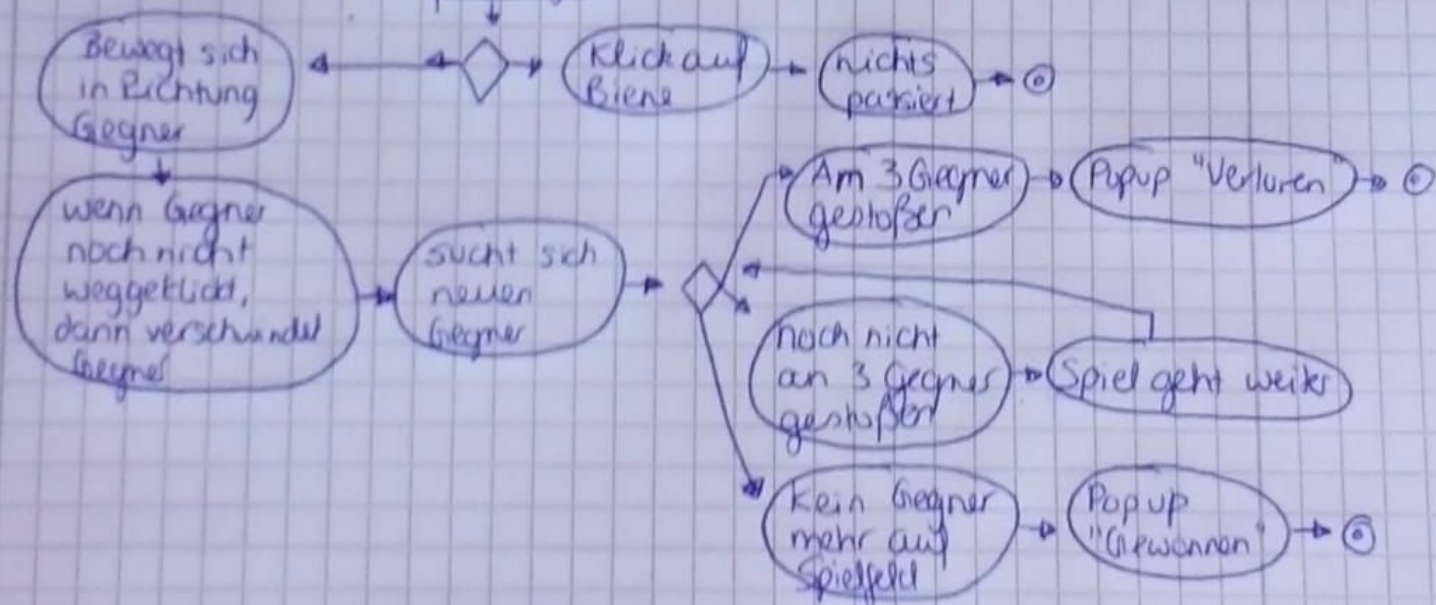 Bewegt sich
in Richtung
Gegner
Klick auf
Biene
nichts
passiert
wenn Gegner
noch nicht
weggeklickt,
dann verschwindet
Gegner
sucht sich
neuen
Gegner
Am 3 Gegner
gestoßen
Popup "Verloren"
noch nicht
an 3 Gegner
gestoßen
Spiel geht weiter
Kein Gegner
mehr auf
Spielfeld
Popup
"Gewonnen"